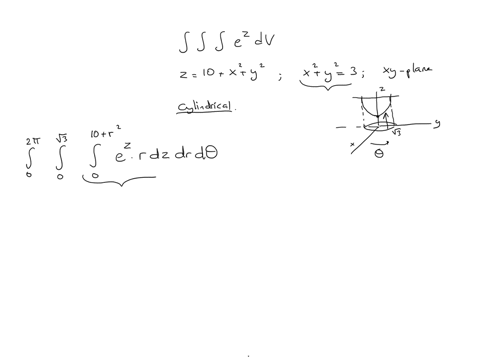 ∫ ∫ ∫ e^z dV
z = 10 + x² + y² ; x² + y² = 3 ; xy-plane
Cylindrical.
z
y
√3
x
θ
2π √3 10+r²
∫ ∫ ∫ e^z · r dz dr dθ
0 0 0